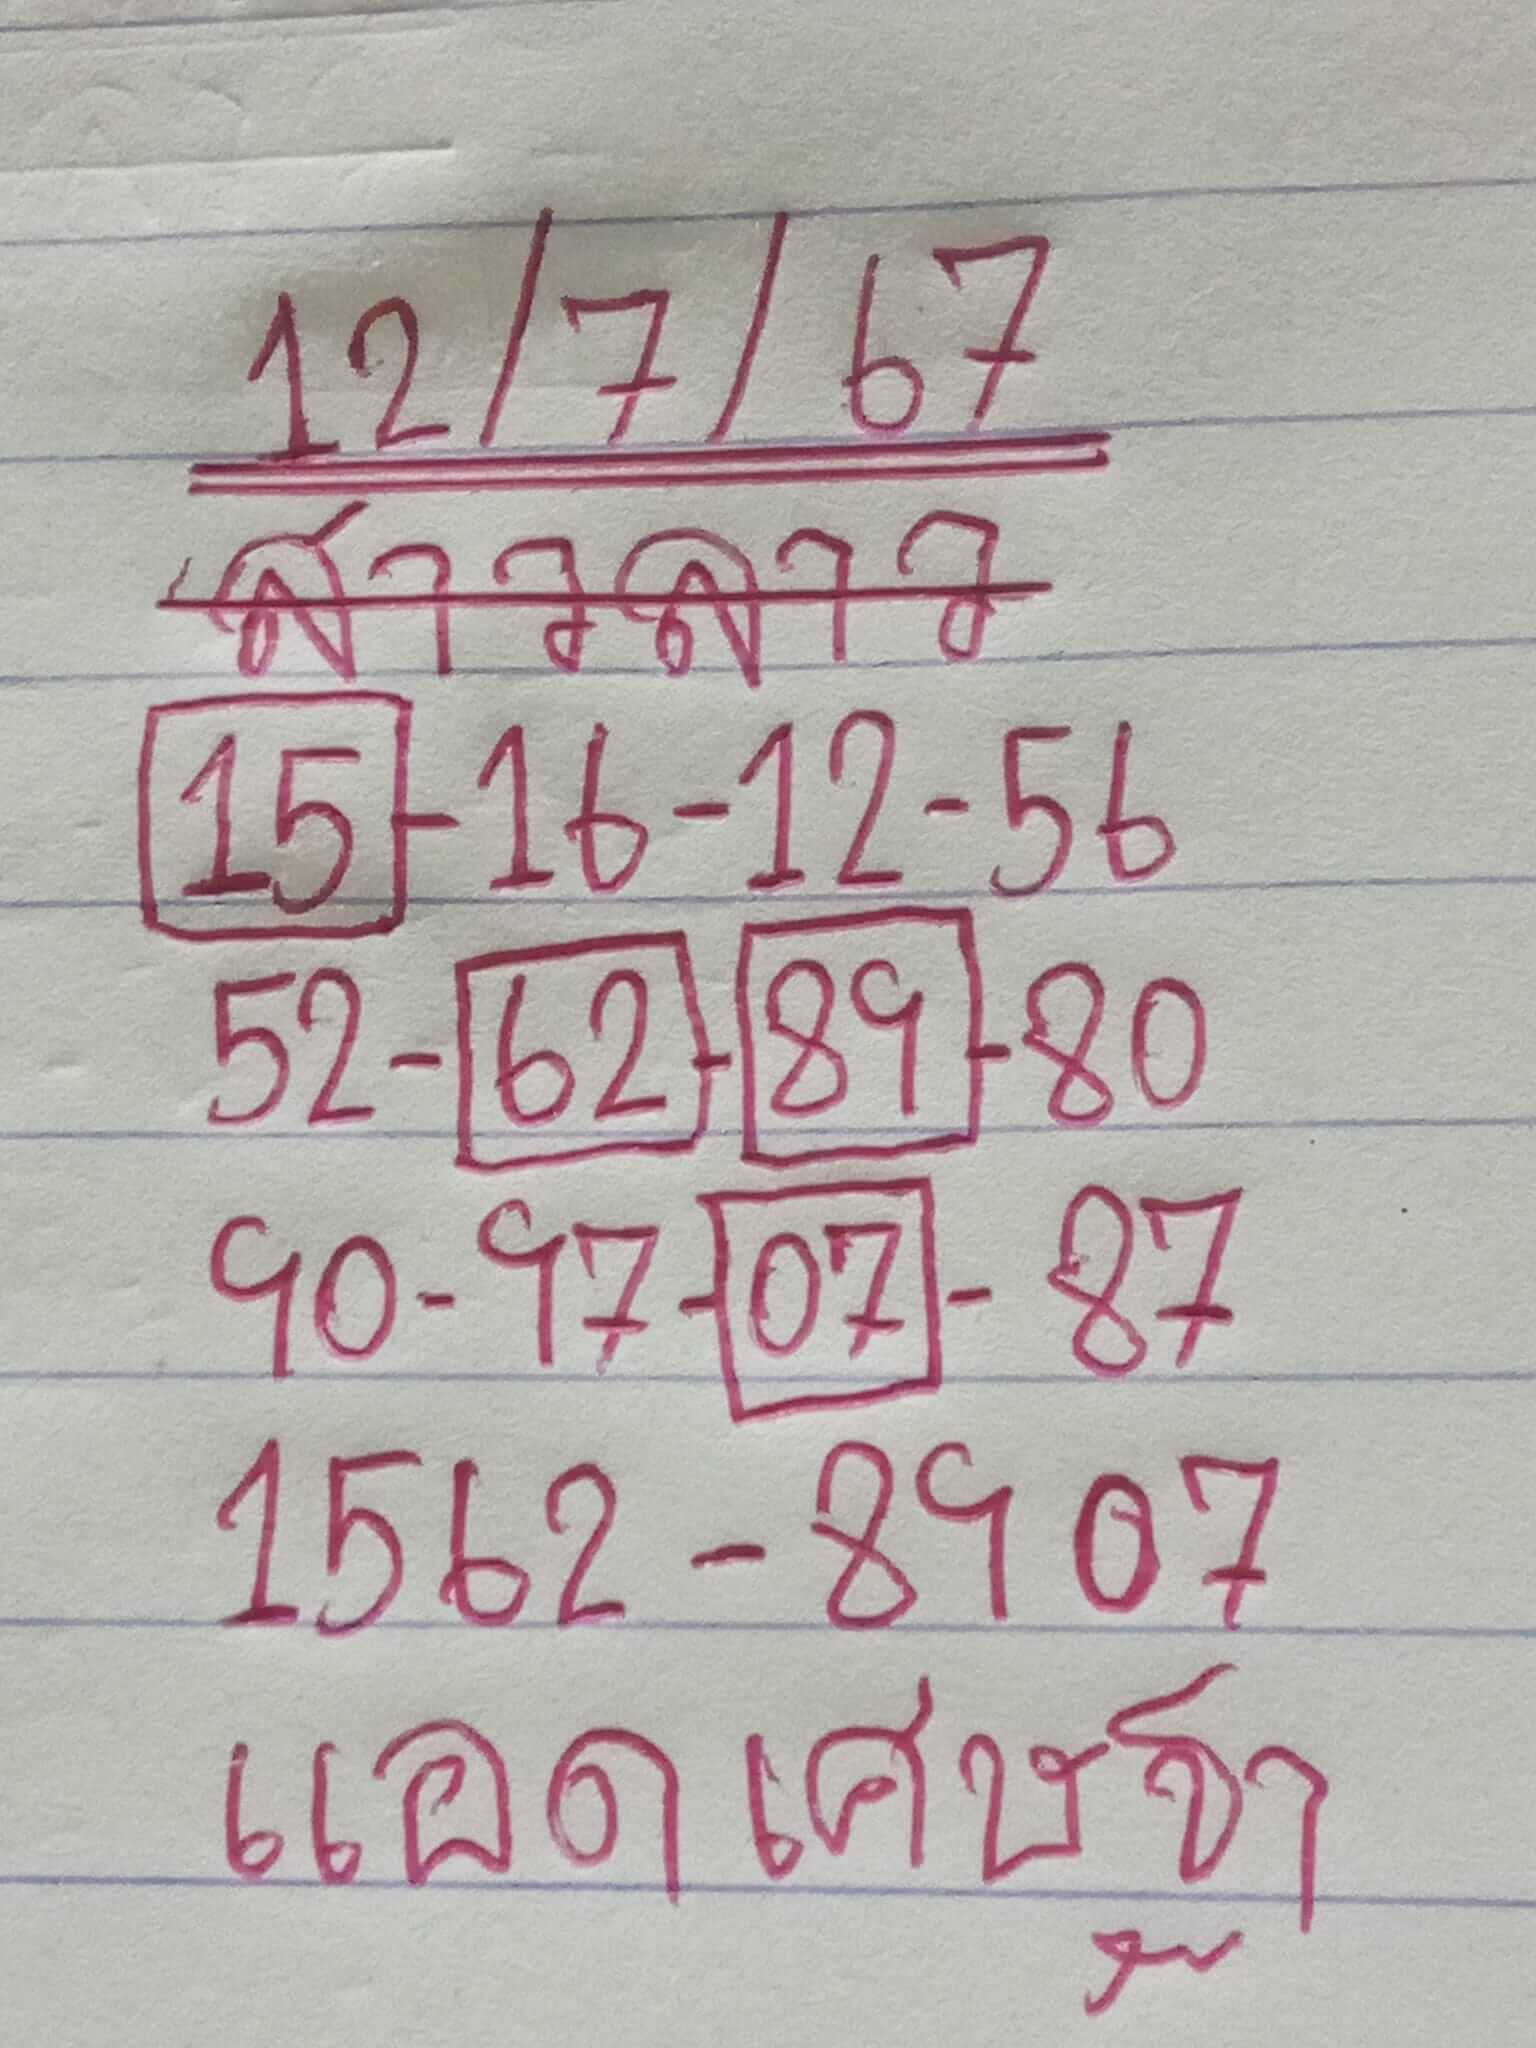 12/7/67
สาวลาว
15-16-12-56
52-62-89-80
90-97-07-87
1562-8907
แอด เศษฐา